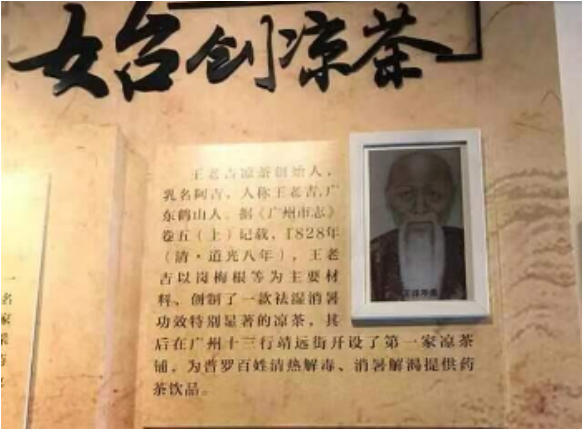 始创凉茶
王老吉凉茶创始人，
乳名阿吉，人称王老吉,广
东鹤山人。据《广州市志》
卷五（上）记载，1828年
（清·道光八年），王老
吉以岗梅根等为主要材
料、创制了一款祛湿消暑
功效特别显著的凉茶，其
后在广州十三行靖远街开设了第一家凉茶
铺，为普罗百姓清热解毒、消暑解渴提供药
茶饮品。
一
名
家